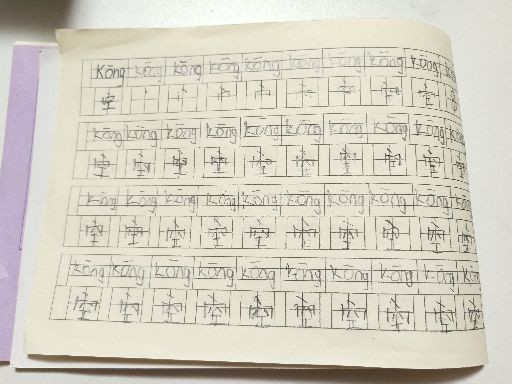 kōng kōng kōng kōng kōng kōng kōng kōng kōng
空 空 空
kōng kōng kōng kōng kōng kōng kōng kōng kōng
空 空 空 空 空 空 空 空 空
kōng kōng kōng kōng kōng kōng kōng kōng kōng
空 空 空 空 空 空 空 空 空 空
kōng kōng kōng kōng kōng kōng kōng kōng kōng
空 空 空 空 空 空 空 空 空 空